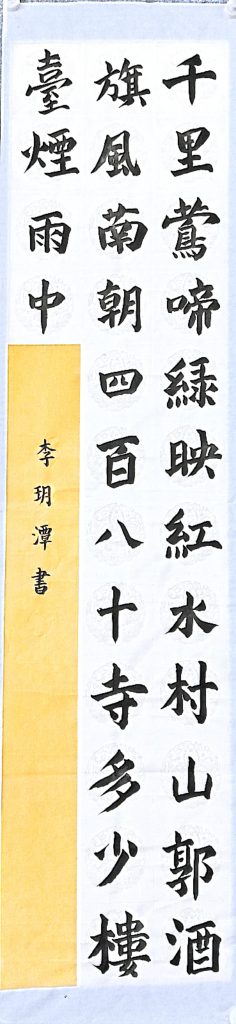 千里鶯啼綠映紅水村山郭酒
旗風南朝四百八十寺多少樓
臺煙雨中
李玥潭書